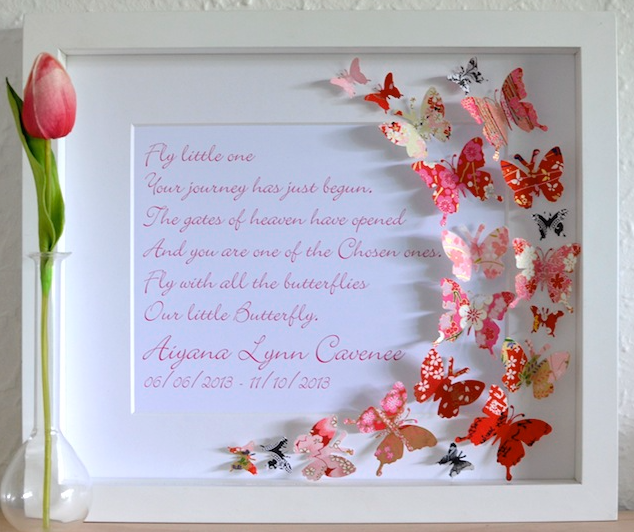 Fly little one
Your journey has just begun.
The gates of heaven have opened
And you are one of the Chosen ones.
Fly with all the butterflies
Our little Butterfly.
Aiyana Lynn Cavenee
06/06/2013 - 11/10/2013